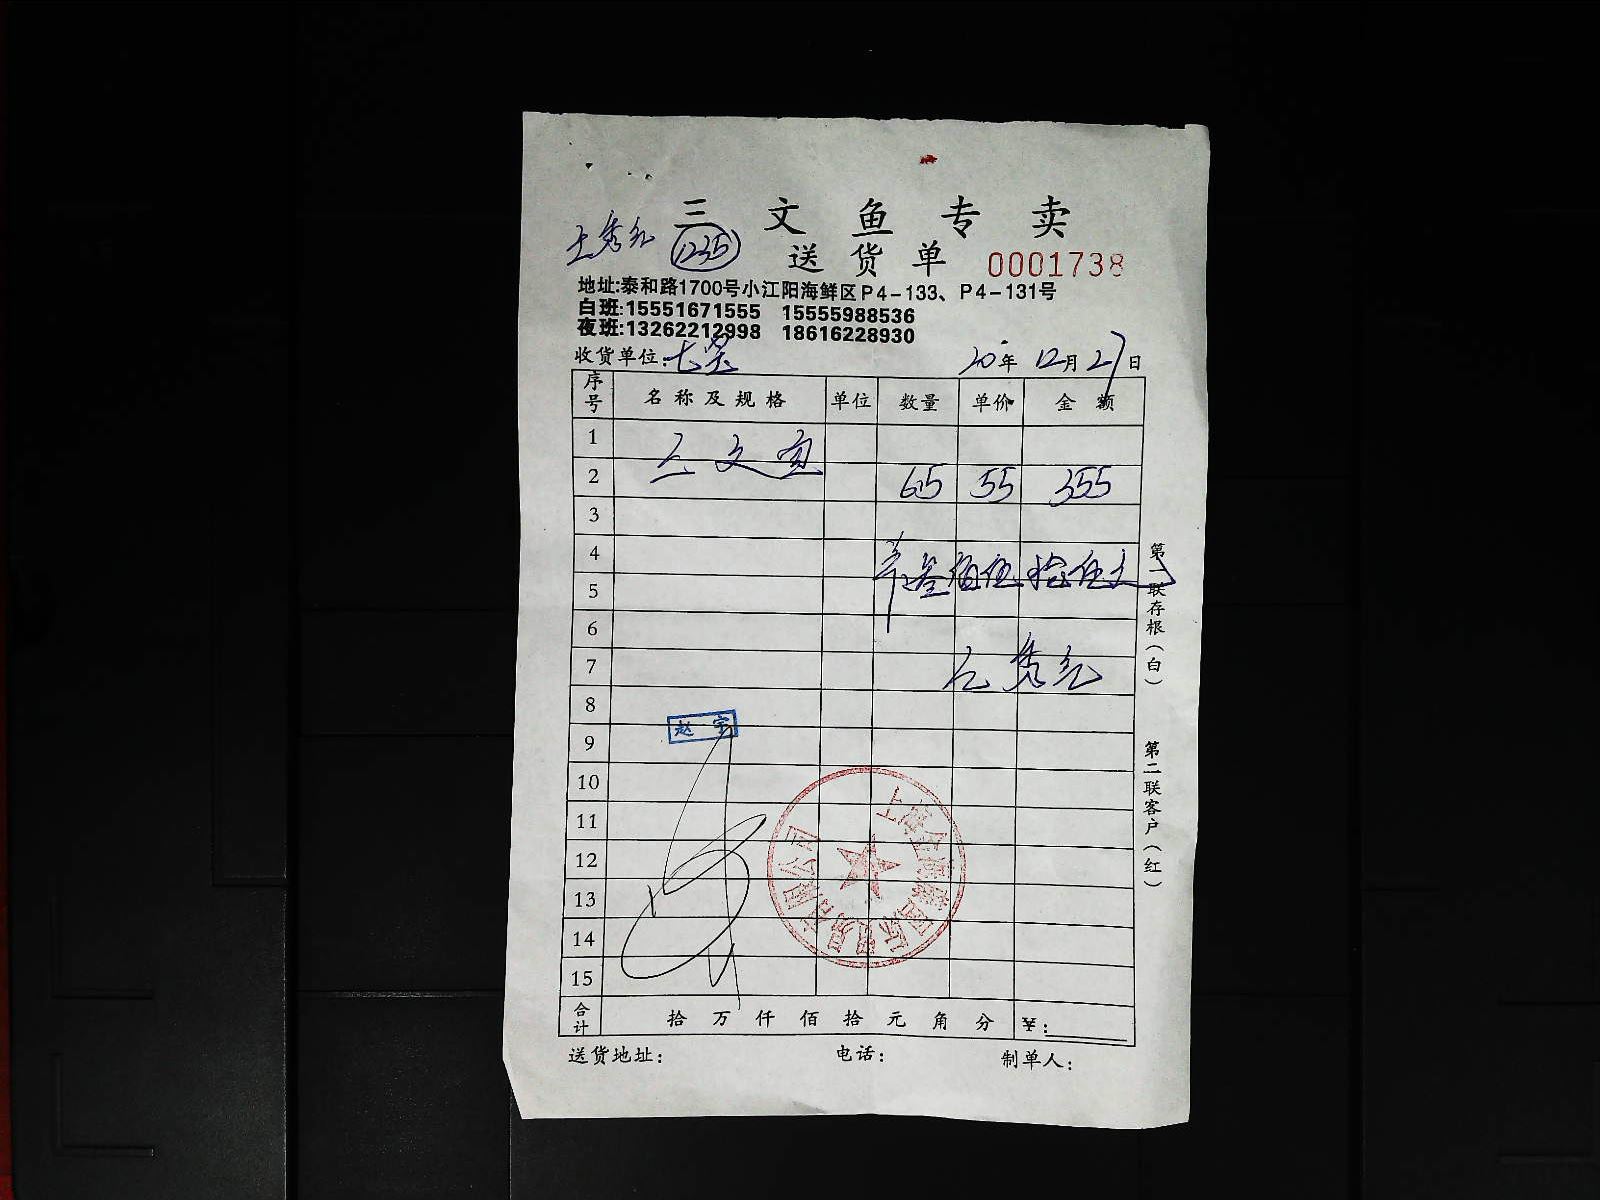 三文鱼专卖
王秀红 1235 送货单 0001738
地址:泰和路1700号小江阳海鲜区P4-133、P4-131号
白班:15551671555 15555988536
夜班:13262212998 18616228930
收货单位: 20年12月27日
序号 名称及规格 单位 数量 单价 金额
1 三文鱼
2 6.5 55 355
3
4
5 叁佰伍拾伍元
6
7 王秀红
8
9 赵
10
11
12
13
14
15
合计 拾万仟佰拾元角分 ¥:
送货地址: 电话: 制单人:
第一联存根(白)
第二联客户(红)